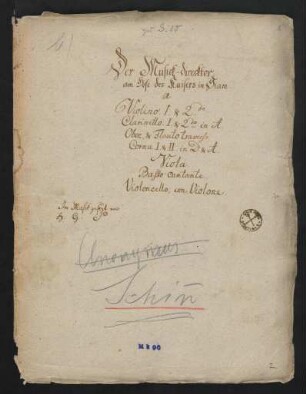 Der Musick-director
am Hofe des Kaisers in
a
Violino I & 2do
Clarinetto I & 2do in A
Oboe, & Flauto travers
Corno I & II in D & A
Viola
Basso Cantante
Violoncello, con Violone
In Musik gesetzt von
Anonymus.
Schön
2